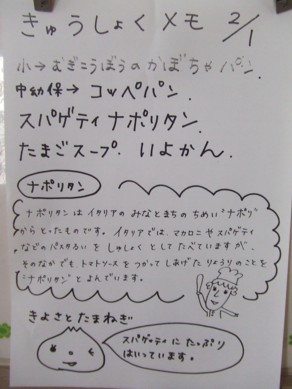 きゅうしょくメモ 2/1
小→むぎこうぼうのかぼちゃパン.
中幼保→コッペパン.
スパゲティナポリタン.
たまごスープ. いよかん.
ナポリタン
ナポリタンはイタリアのみなとまちのちめい"ナポリ"
からとったものです。イタリアでは、マカロニやスパゲティ
などのパスタるいをしゅしょくとしてたべていますが、
そのなかでも、トマトソースをつかってしあげたりょうりのことを
"ナポリタン"とよんでいます。
きよさとたまねぎ
スパゲティにたっぷり
はいっています。